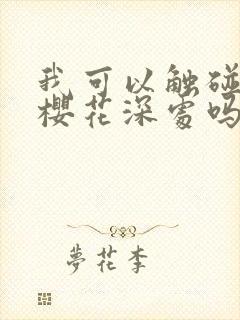 我可以触碰
樱花深處吗
夢花李